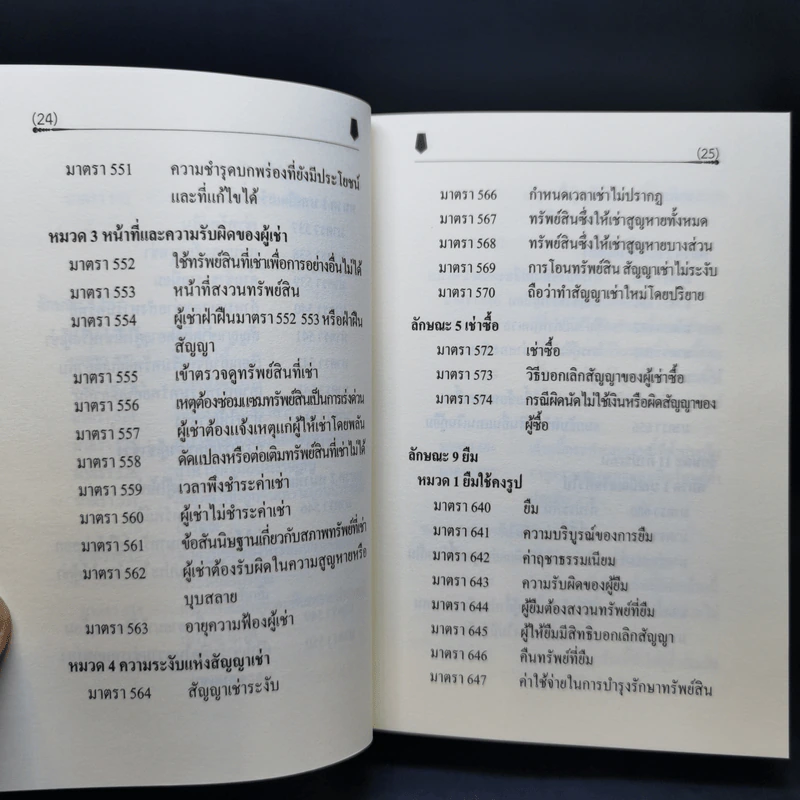 (24)
มาตรา 551 ความชำรุดบกพร่องที่ยังมีประโยชน์
และที่แก้ไขได้
หมวด 3 หน้าที่และความรับผิดของผู้เช่า
มาตรา 552 ใช้ทรัพย์สินที่เช่าเพื่อการอย่างอื่นไม่ได้
มาตรา 553 หน้าที่สงวนทรัพย์สิน
มาตรา 554 ผู้เช่าฝ่าฝืนมาตรา 552 553 หรือฝ่าฝืน
สัญญา
มาตรา 555 เข้าตรวจดูทรัพย์สินที่เช่า
มาตรา 556 เหตุต้องซ่อมแซมทรัพย์สินเป็นการเร่งด่วน
มาตรา 557 ผู้เช่าต้องแจ้งเหตุแก่ผู้ให้เช่าโดยพลัน
มาตรา 558 ดัดแปลงหรือต่อเติมทรัพย์สินที่เช่าไม่ได้
มาตรา 559 เวลาพึงชำระค่าเช่า
มาตรา 560 ผู้เช่าไม่ชำระค่าเช่า
มาตรา 561 ข้อสันนิษฐานเกี่ยวกับสภาพทรัพย์ที่เช่า
มาตรา 562 ผู้เช่าต้องรับผิดในความสูญหายหรือ
บุบสลาย
มาตรา 563 อายุความฟ้องผู้เช่า
หมวด 4 ความระงับแห่งสัญญาเช่า
มาตรา 564 สัญญาเช่าระงับ
(25)
มาตรา 566 กำหนดเวลาเช่าไม่ปรากฏ
มาตรา 567 ทรัพย์สินซึ่งให้เช่าสูญหายทั้งหมด
มาตรา 568 ทรัพย์สินซึ่งให้เช่าสูญหายบางส่วน
มาตรา 569 การโอนทรัพย์สิน สัญญาเช่าไม่ระงับ
มาตรา 570 ถือว่าทำสัญญาเช่าใหม่โดยปริยาย
ลักษณะ 5 เช่าซื้อ
มาตรา 572 เช่าซื้อ
มาตรา 573 วิธีบอกเลิกสัญญาของผู้เช่าซื้อ
มาตรา 574 กรณีผิดนัดไม่ใช้เงินหรือผิดสัญญาของ
ผู้ซื้อ
ลักษณะ 9 ยืม
หมวด 1 ยืมใช้คงรูป
มาตรา 640 ยืม
มาตรา 641 ความบริบูรณ์ของการยืม
มาตรา 642 ค่าฤชาธรรมเนียม
มาตรา 643 ความรับผิดของผู้ยืม
มาตรา 644 ผู้ยืมต้องสงวนทรัพย์ที่ยืม
มาตรา 645 ผู้ให้ยืมมีสิทธิบอกเลิกสัญญา
มาตรา 646 คืนทรัพย์ที่ยืม
มาตรา 647 ค่าใช้จ่ายในการบำรุงรักษาทรัพย์สิน